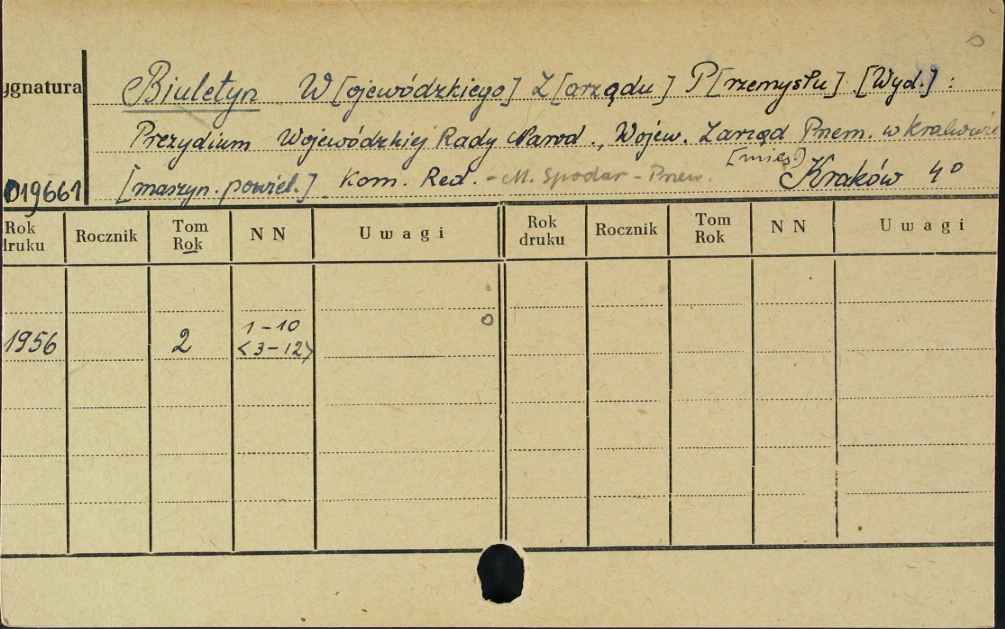 ygnatura
Biuletyn W[ojewódzkiego] Z[arządu] P[rzemysłu] [Wyd.]:
Prezydium Wojewódzkiej Rady Narod., Wojew. Zarząd Przem. w Krakowie
[mies.]
019661 [maszyn. powiel.] Kom. Red. - M. Spodar - Przew. Kraków 4°
Rok druku Rocznik Tom Rok N N U w a g i Rok druku Rocznik Tom Rok N N U w a g i
1956 2 1-10
<3-12>